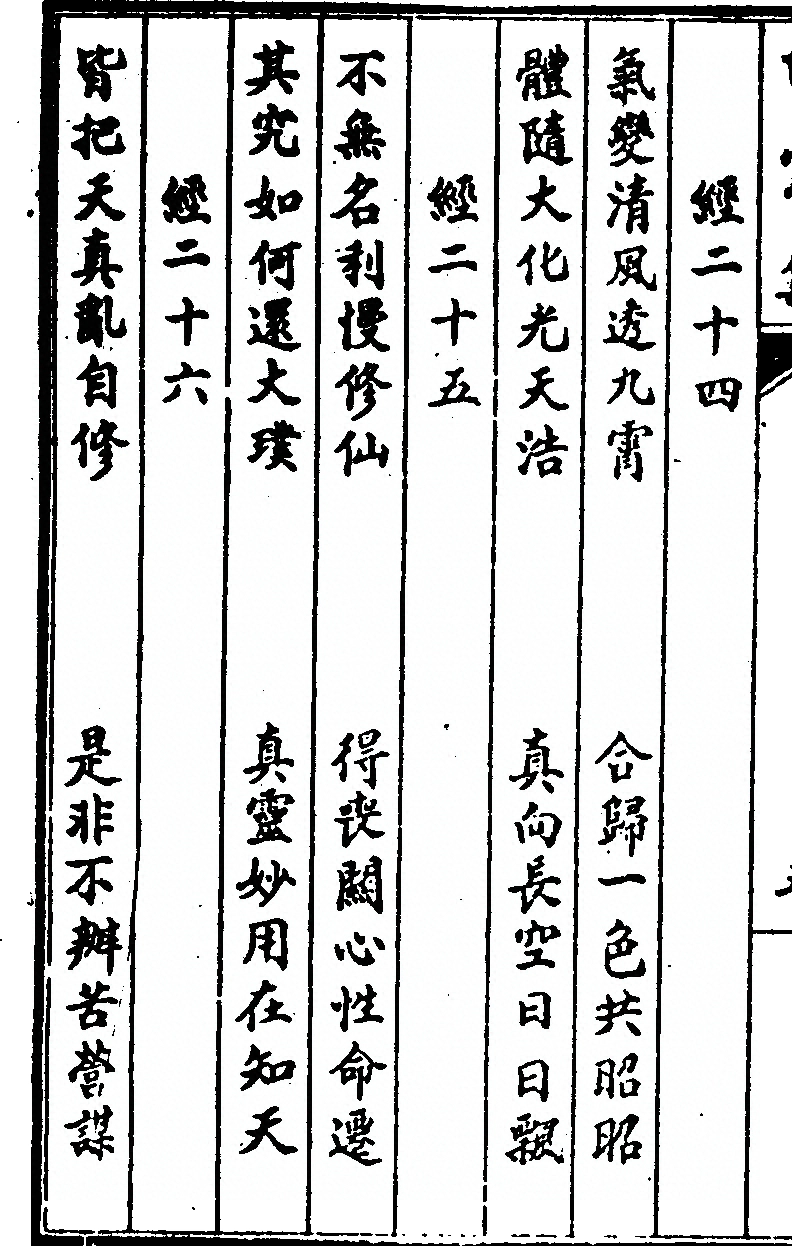 經二十四
氣變清風透九霄　合歸一色共昭昭
體隨大化光天浩　真向長空日日飄
經二十五
不無名利慢修仙　得喪關心性命遷
其究如何還大璞　真靈妙用在知天
經二十六
皆把天真亂自修　是非不辨苦營謀